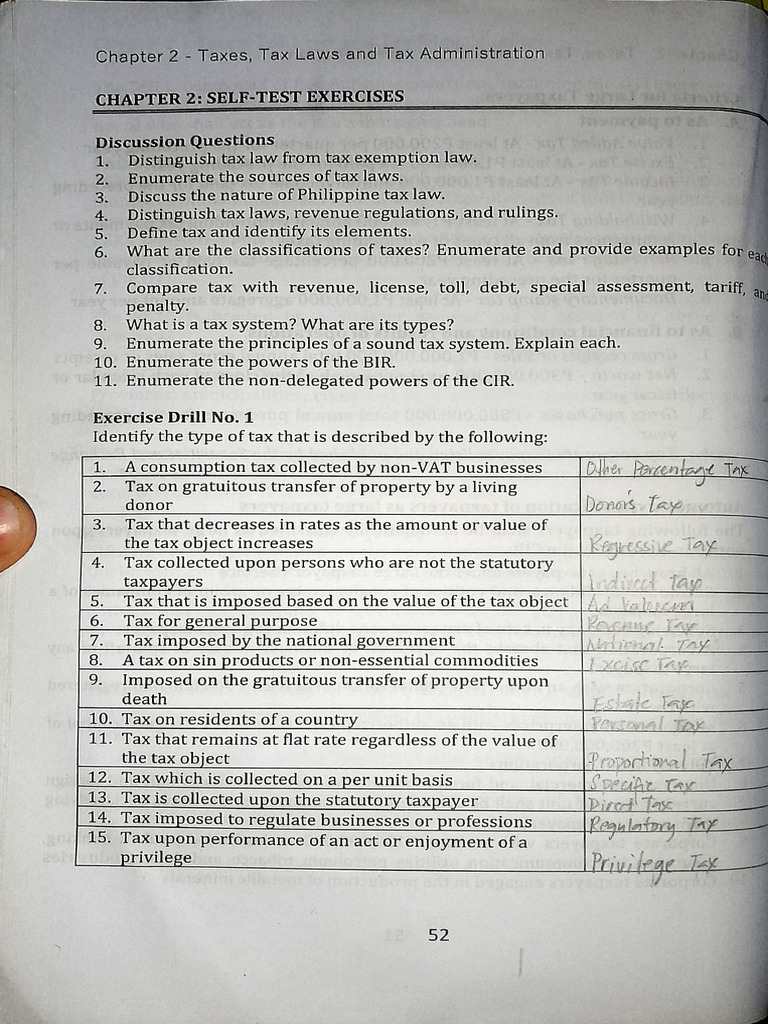 Chapter 2 - Taxes, Tax Laws and Tax Administration
CHAPTER 2: SELF-TEST EXERCISES
Discussion Questions
1. Distinguish tax law from tax exemption law.
2. Enumerate the sources of tax laws.
3. Discuss the nature of Philippine tax law.
4. Distinguish tax laws, revenue regulations, and rulings.
5. Define tax and identify its elements.
6. What are the classifications of taxes? Enumerate and provide examples for each
classification.
7. Compare tax with revenue, license, toll, debt, special assessment, tariff, and
penalty.
8. What is a tax system? What are its types?
9. Enumerate the principles of a sound tax system. Explain each.
10. Enumerate the powers of the BIR.
11. Enumerate the non-delegated powers of the CIR.
Exercise Drill No. 1
Identify the type of tax that is described by the following:
1. A consumption tax collected by non-VAT businesses Other Percentage Tax
2. Tax on gratuitous transfer of property by a living
donor Donor's Tax
3. Tax that decreases in rates as the amount or value of
the tax object increases Regressive Tax
4. Tax collected upon persons who are not the statutory
taxpayers Indirect Tax
5. Tax that is imposed based on the value of the tax object Ad Valorem
6. Tax for general purpose Revenue Tax
7. Tax imposed by the national government National Tax
8. A tax on sin products or non-essential commodities Excise Tax
9. Imposed on the gratuitous transfer of property upon
death Estate Tax
10. Tax on residents of a country Personal Tax
11. Tax that remains at flat rate regardless of the value of
the tax object Proportional Tax
12. Tax which is collected on a per unit basis Specific Tax
13. Tax is collected upon the statutory taxpayer Direct Tax
14. Tax imposed to regulate businesses or professions Regulatory Tax
15. Tax upon performance of an act or enjoyment of a
privilege Privilege Tax
52